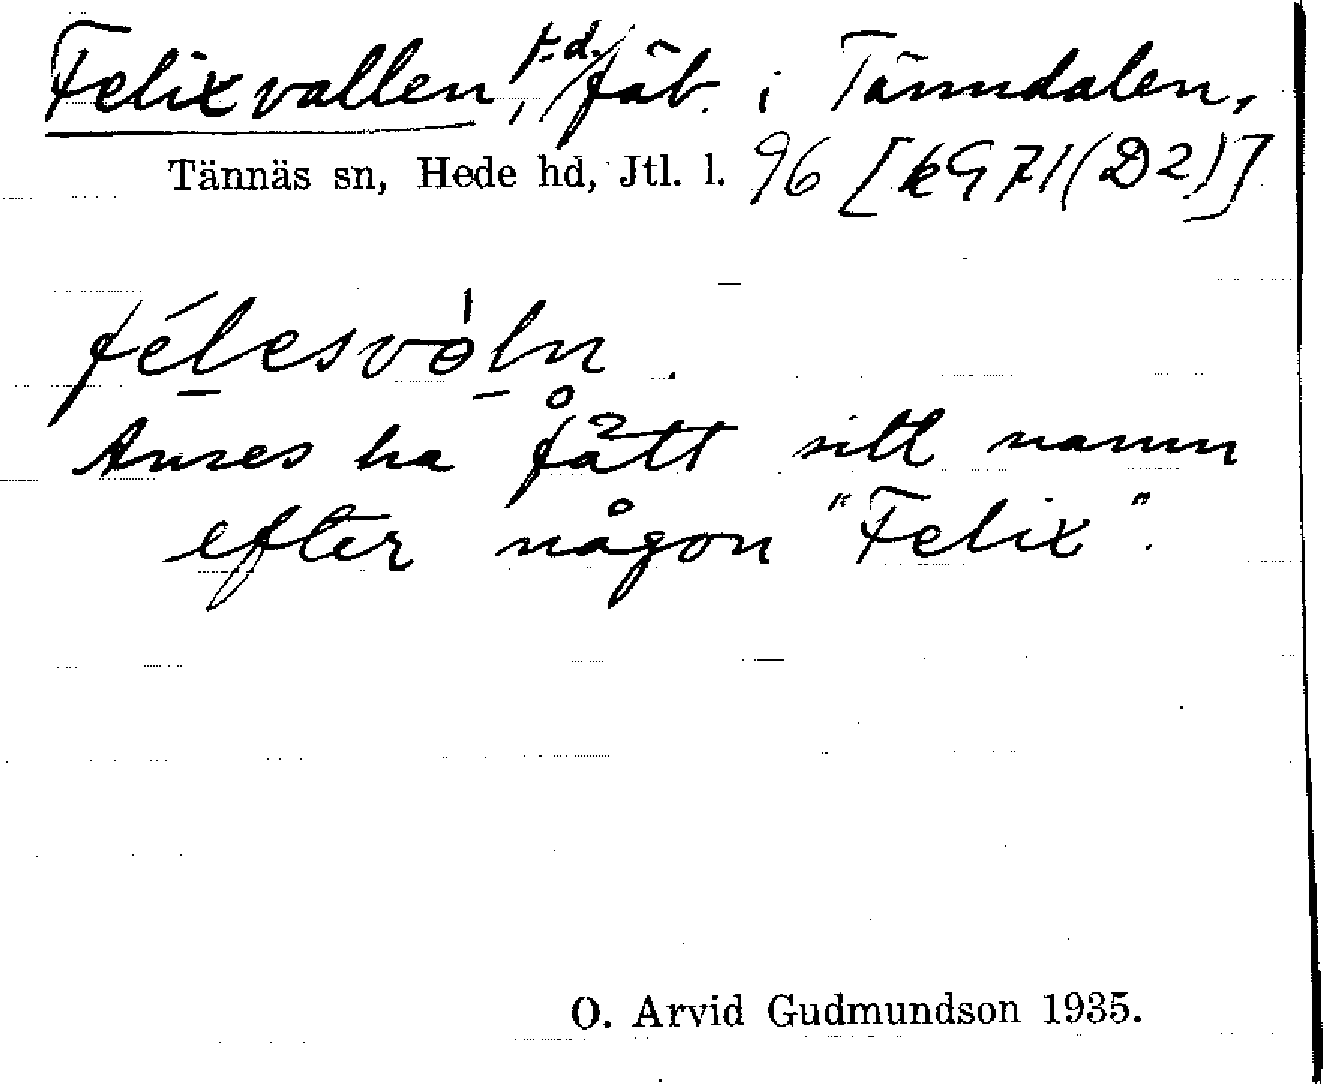 Felixvallen, f.d. fäb. i Tänndalen,
Tännäs sn, Hede hd, Jtl. l. 96 [kG71(D2)]
félesvòln.
Anses ha fått sitt namn
efter någon "Felix".
O. Arvid Gudmundson 1935.